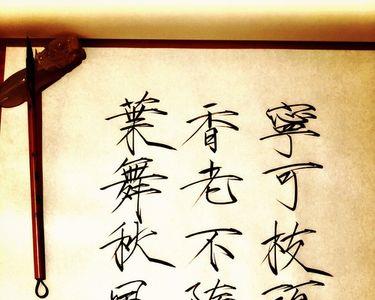 寧可枝
香老不
葉舞秋